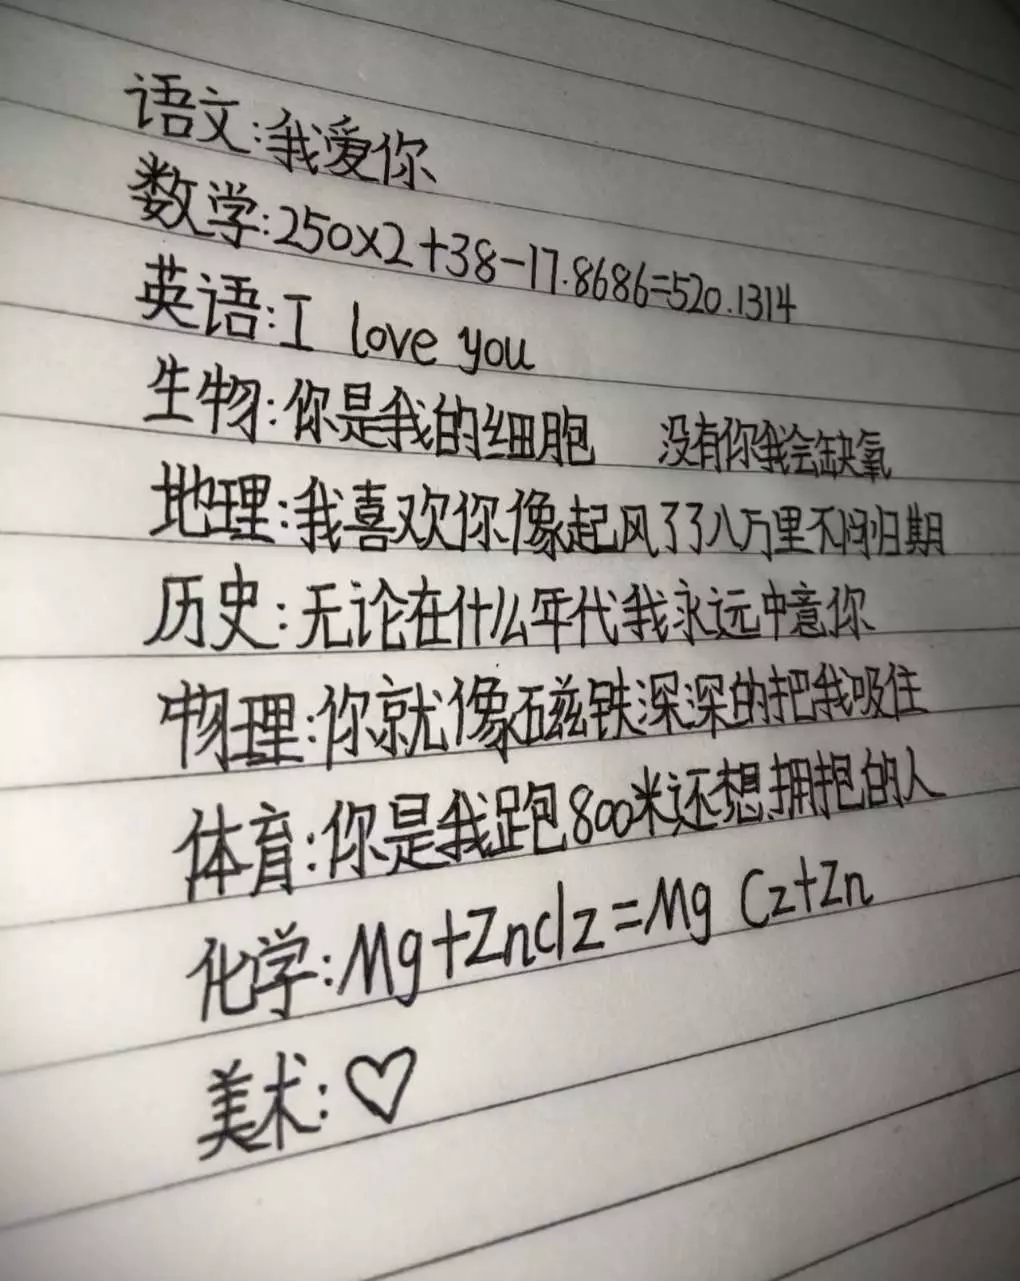 语文:我爱你
数学:250×2+38-17.8686=520.1314
英语:I love you
生物:你是我的细胞 没有你我会缺氧
地理:我喜欢你像起风了了八万里不问归期
历史:无论在什么年代我永远中意你
物理:你就像磁铁深深的把我吸住
体育:你是我跑800米还想拥抱的人
化学:Mg+Znclz=Mg Cz+Zn
美术:♡